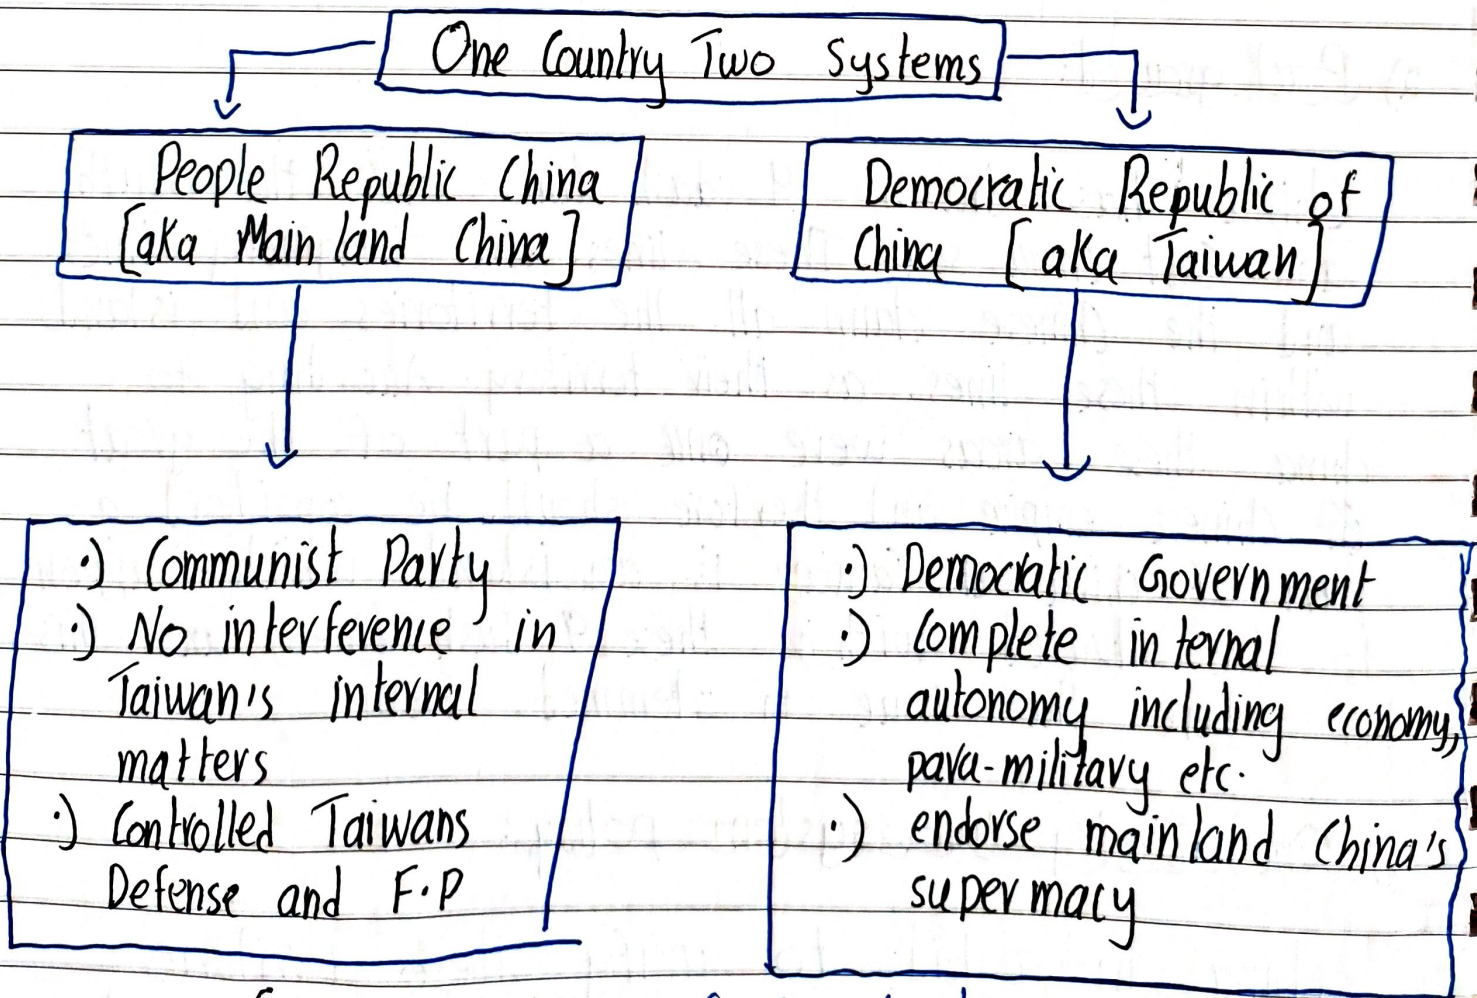 One Country Two Systems
People Republic China
[aka Main land China]
Democratic Republic of
China [aka Taiwan]
·) Communist Party
·) No interference in
Taiwan's internal
matters
·) Controlled Taiwans
Defense and F.P
·) Democratic Government
·) Complete internal
autonomy including economy,
para-military etc.
·) endorse mainland China's
supermacy